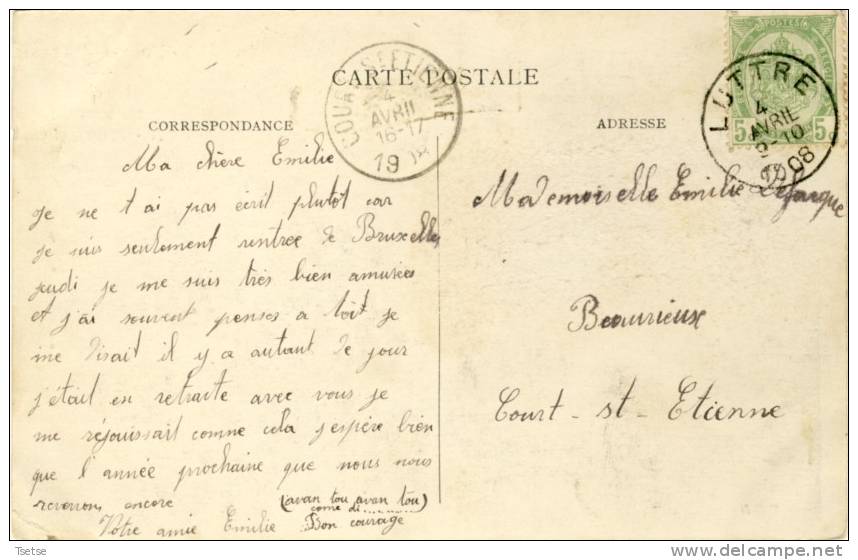 CARTE POSTALE
CORRESPONDANCE
ADRESSE
COURT-ST-ETIENNE
4
AVRIL
16-17
19 08
POSTES
5 5
LUTTRE
4
AVRIL
9-10
1908
Ma chère Emilie
Je ne t ai pas écrit plutôt car
je suis seulement rentree de Bruxelles
jeudi je me suis très bien amusées
et j'ai souvent penses a toit je
me disait il y a autant de jour
j'étail en retraite avec vous je
me rejouissait comne cela j espère bien
que l année prochaine que nous nous
reverrons encore (avan tou avan tou)
come di
Votre amie Emilie Bon courage
Mademoiselle Emilie
Beaurieux
Court-st-Etienne
Tsetse
www.delcampe.net